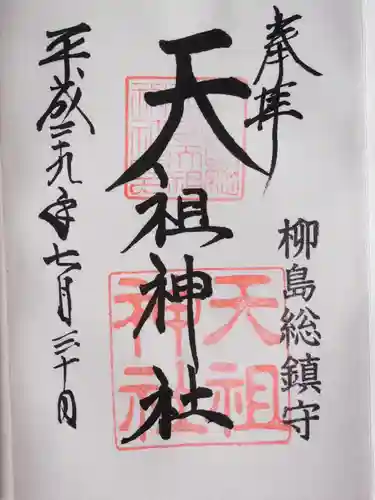 奉拝
柳島総鎮守
天祖神社
天祖神社
平成二十九年七月三十日